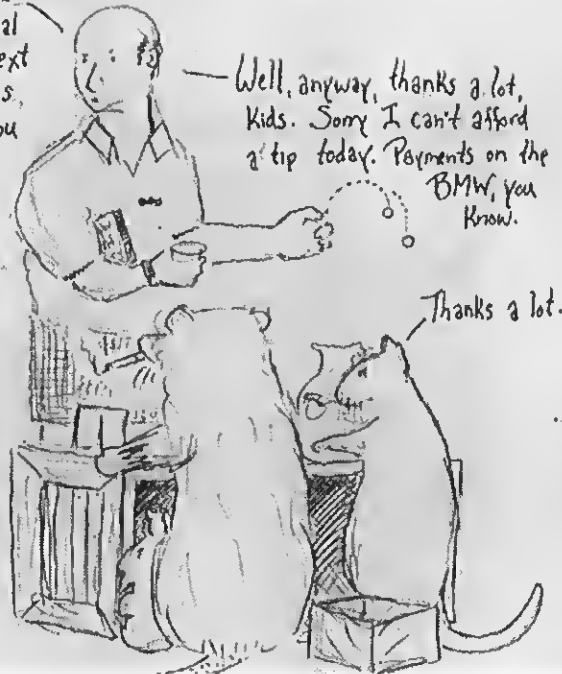 al
ext
s,
ou
Well, anyway, thanks a lot,
Kids. Sorry I can't afford
a tip today. Payments on the
BMW, you
Know.
Thanks a lot.